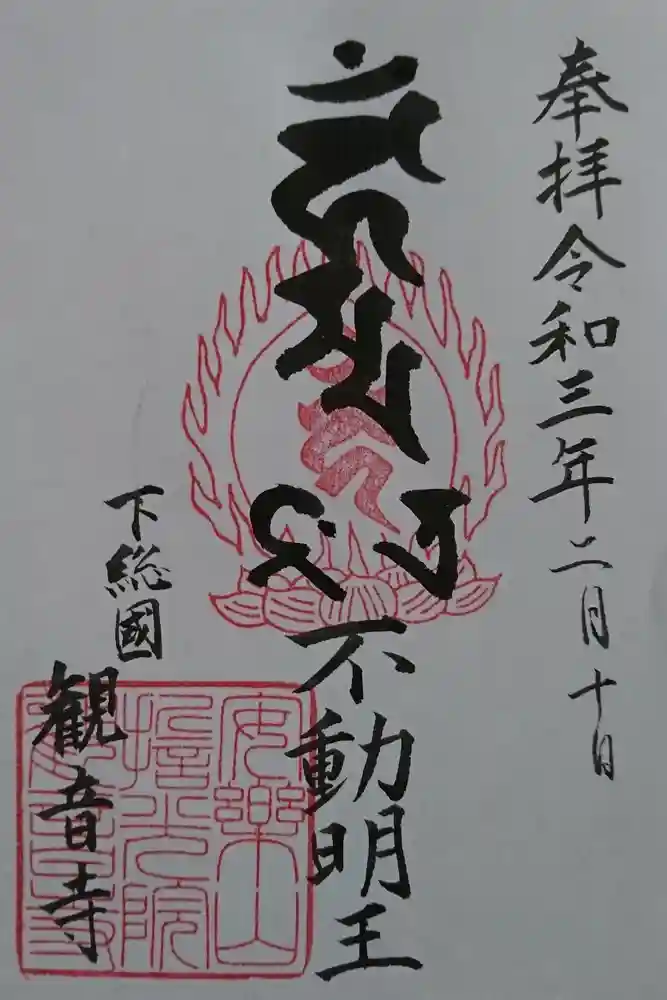 奉拝令和三年二月十日
不動明王
下総國
観音寺
安樂山